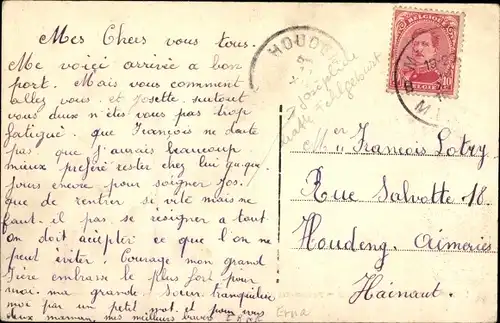 Mes Chers vous tous.
Me voici arrivée a bon
port. Mais vous comment
allez vous et Josette surtout
vous deux n'êtes vous pas trop
fatigué. que François ne doute
pas que j'aurais beaucoup
mieux préféré rester chez lui que-que
jours encore pour soigner Jos.
que de rentrer si vite mais ne
faut-il pas se résigner a tout
On doit accepter ce que l'on ne
peut éviter. Courage mon grand
frère embrasse le plus fort pour
moi ma grande Soeur tranquilise
moi par un petit mot et pour vous
deux maman, mes meilleurs baisers
Erna
HOUDE
BELGIQUE
10
BELGIË
Mer François Lotry
Rue Salvotte 18.
Houdeng-Aimeries
Hainaut.